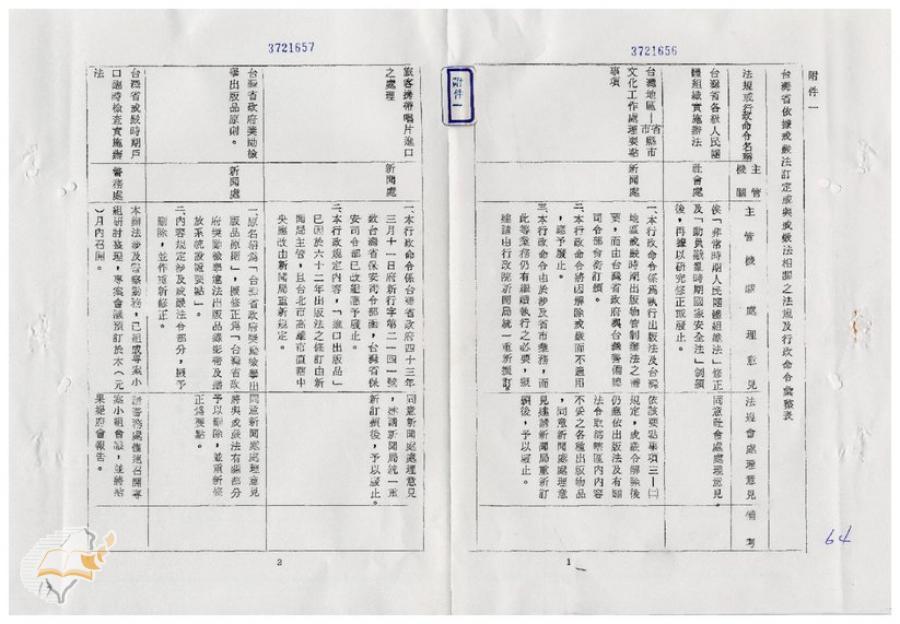 3721656
附件一
附件一
台灣省依據戒嚴法訂定或與戒嚴法相關之法規及行政命令彙整表
法規或行政命令名稱
主管機關
主管機關處理意見
法規會處理意見
備考
台灣省各級人民團
體組織實施辦法
社會處
俟「非常時期人民團體組織法」修正
及「動員戡亂時期國家安全法」制頒
後，再據以研究修正或廢止。
同意社會處處理意見。
台灣地區省市縣市
文化工作處理要點
事項
新聞處
一、本行政命令係為執行出版法及台灣
地區戒嚴時期出版物管制辦法之需
要，而由台灣省政府與台灣警備總
司令部會銜訂頒。
二、本行政命令將因解除戒嚴而不適用
，應予廢止。
三、本行政命令由於涉及省市業務，而
此等業務仍有繼續執行之必要，擬
建請由行政院新聞局統一重新擬訂。
依該要點事項三—㈡
規定，戒嚴令解除後
仍應依出版法及有關
法令取締轄區內內容
不妥之各種出版物品
，同意新聞處處理意
見建請新聞局重新訂
頒後，予以廢止。
1
64
3721657
旅客攜帶唱片進口
之處理
新聞處
一、本行政命令係台灣省政府四十三年
三月十一日府新行字第二一四一號
致台灣省保安司令部函，台灣省保
安司令部已改組應予廢止。
二、本行政規定內容，「進口出版品」
已因於六十二年出版法之修訂由新
聞局主管，且台北市高雄市直轄中
央應改由新聞局重新規定。
同意新聞處處理意見
，建請新聞局統一重
新訂頒後，予以廢止。
台灣省政府獎勵檢
舉出版品原則。
新聞處
一、原名稱為「台灣省政府獎勵檢舉出
版品原則」，擬修正為「台灣省政
府獎勵檢舉違法出版品錄影帶及播
放系統設施要點」。
二、內容規定涉及戒嚴法令部分，擬予
刪除，並作重新修正。
同意新聞處處理意見
將與戒嚴法有關部分
予以刪除，並重新修
正為要點。
台灣省戒嚴時期戶
口臨時檢查實施辦
法
警務處
本辦法涉及警察勤務，已組成專案小
組研討整理，專案會議預訂於本（元
）月內召開。
請警務處儘速召開專
案小組會議，並將結
果提府會報告。
2